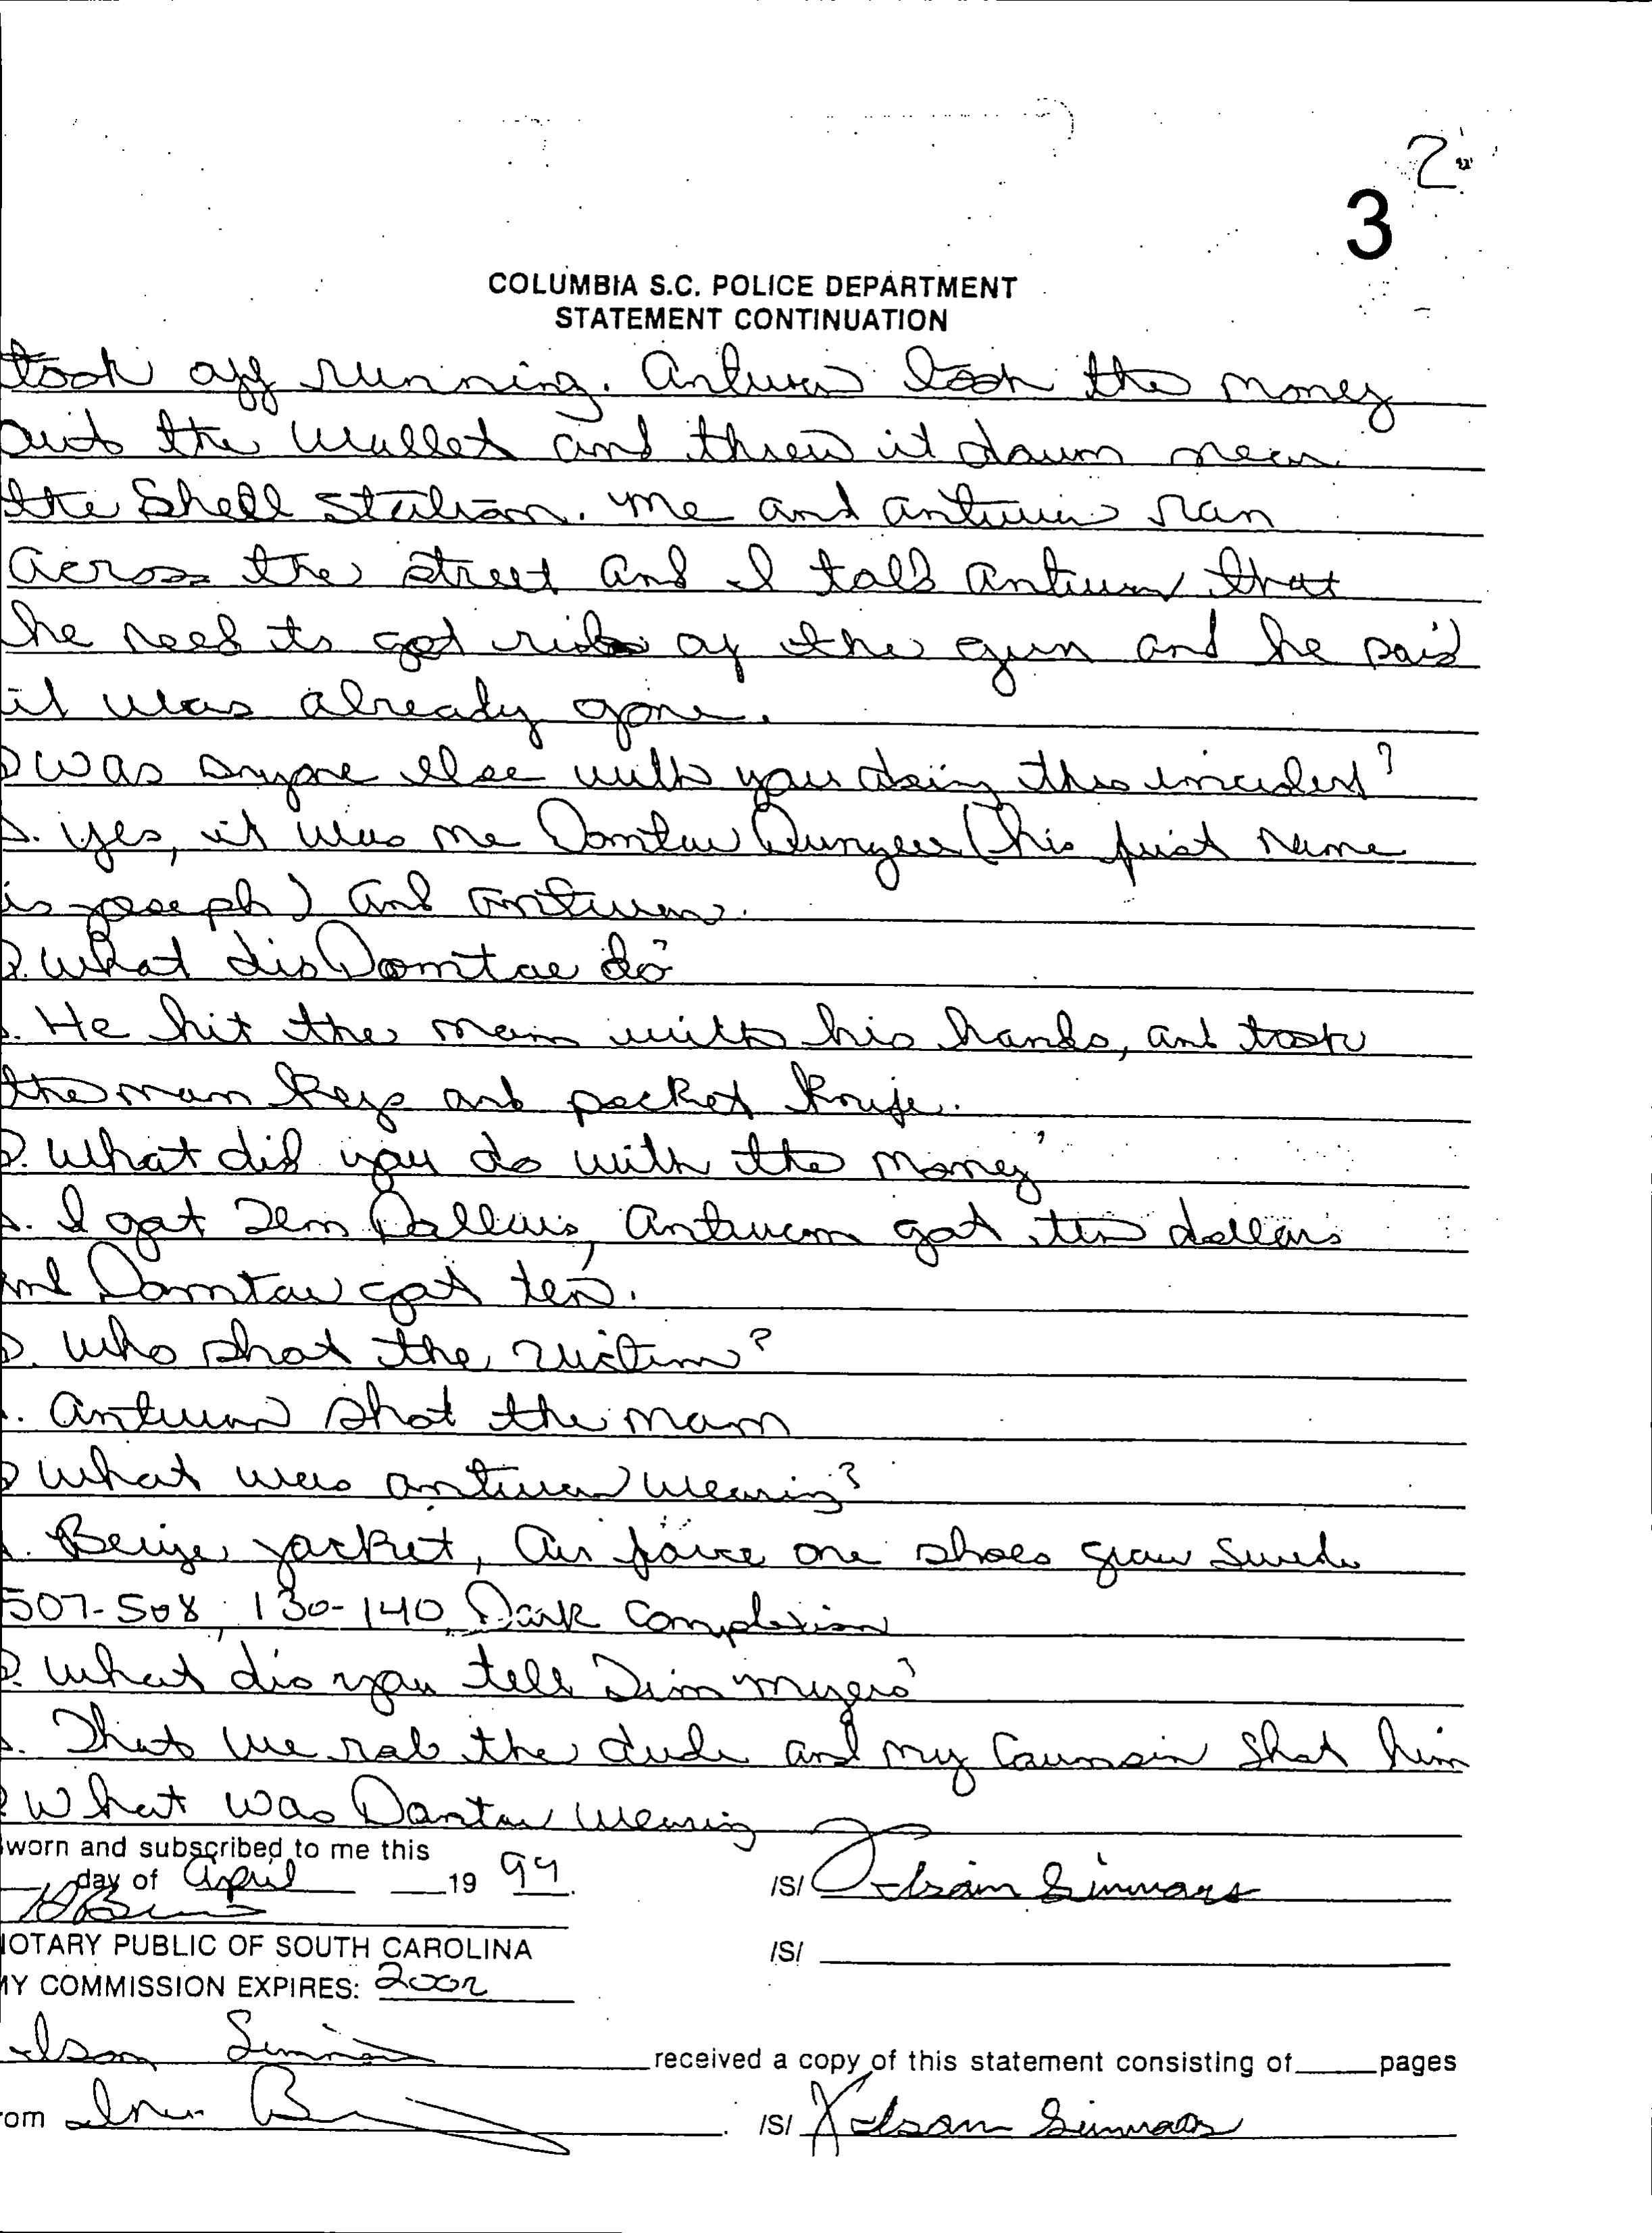 2
3
COLUMBIA S.C. POLICE DEPARTMENT
STATEMENT CONTINUATION
took off running. Antwan took the money
out the wallet and threw it down near
the Shell station. me and antwan ran
Across the street and I told antwan that
he need to get rid of the gun and he said
it was already gone.
Q was anyone else with you doing this incident?
A. yes, it was me Domtae (his first name
is joseph) and antwan.
Q. what did Domtae do?
A. He hit the man with his hands, and took
the man keys and pocket knife.
Q. What did you do with the money?
A. I got Ten Dollars, antwan got ten dollars
and Domtae got ten.
Q. who shot the victim?
A. antwan shot the man
Q what was antwan wearing?
A. Beige jacket, Air force one shoes gray Suede
507-508, 130-140, Dark complexion
Q. what did you tell Tim myers?
A. That we rob the dude and my Cousin shot him
Q What was Dantae wearing
sworn and subscribed to me this
day of April 19 99
/S/
NOTARY PUBLIC OF SOUTH CAROLINA
/S/
MY COMMISSION EXPIRES: 2002
received a copy of this statement consisting of pages
from
/S/